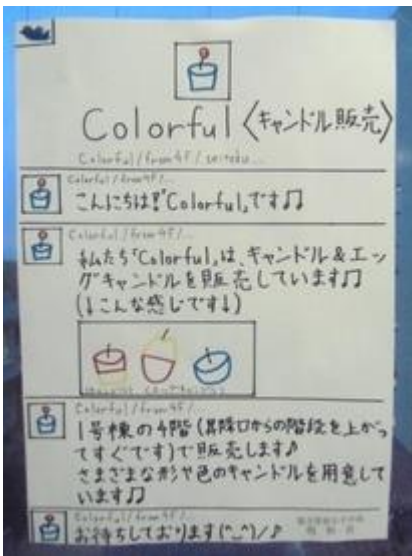 Colorful〈キャンドル販売〉
Colorful/from4F/seitoku...
Colorful/from4F/...
こんにちは!"Colorful"です♫
Colorful/from4F/...
私たち「Colorful」は、キャンドル&エッ
グキャンドルを販売しています♫
(↓こんな感じです↓)
Colorful/from4F/...
1号棟の4階(昇降口からの階段を上がっ
てすぐです)で販売します♪
さまざまな形や色のキャンドルを用意して
います♫
Colorful/from4F/...
お待ちしております(^_^)/♪